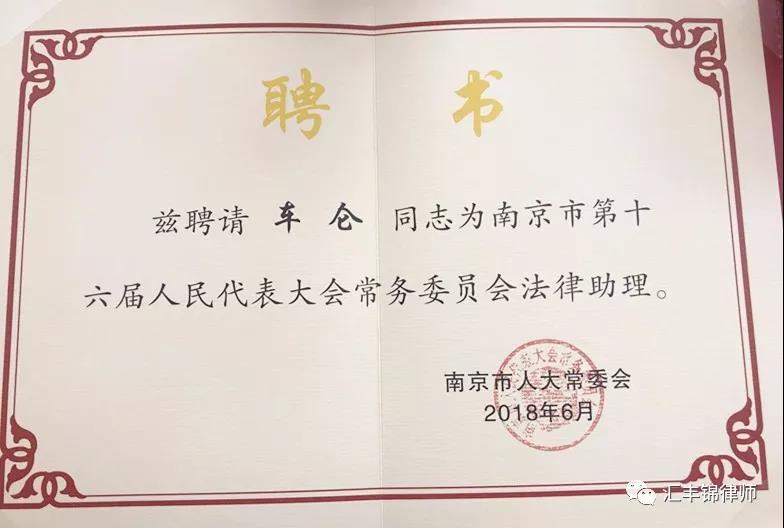 聘书
兹聘请 车仑 同志为南京市第十
六届人民代表大会常务委员会法律助理。
南京市人大常委会
2018年6月
汇丰锦律师